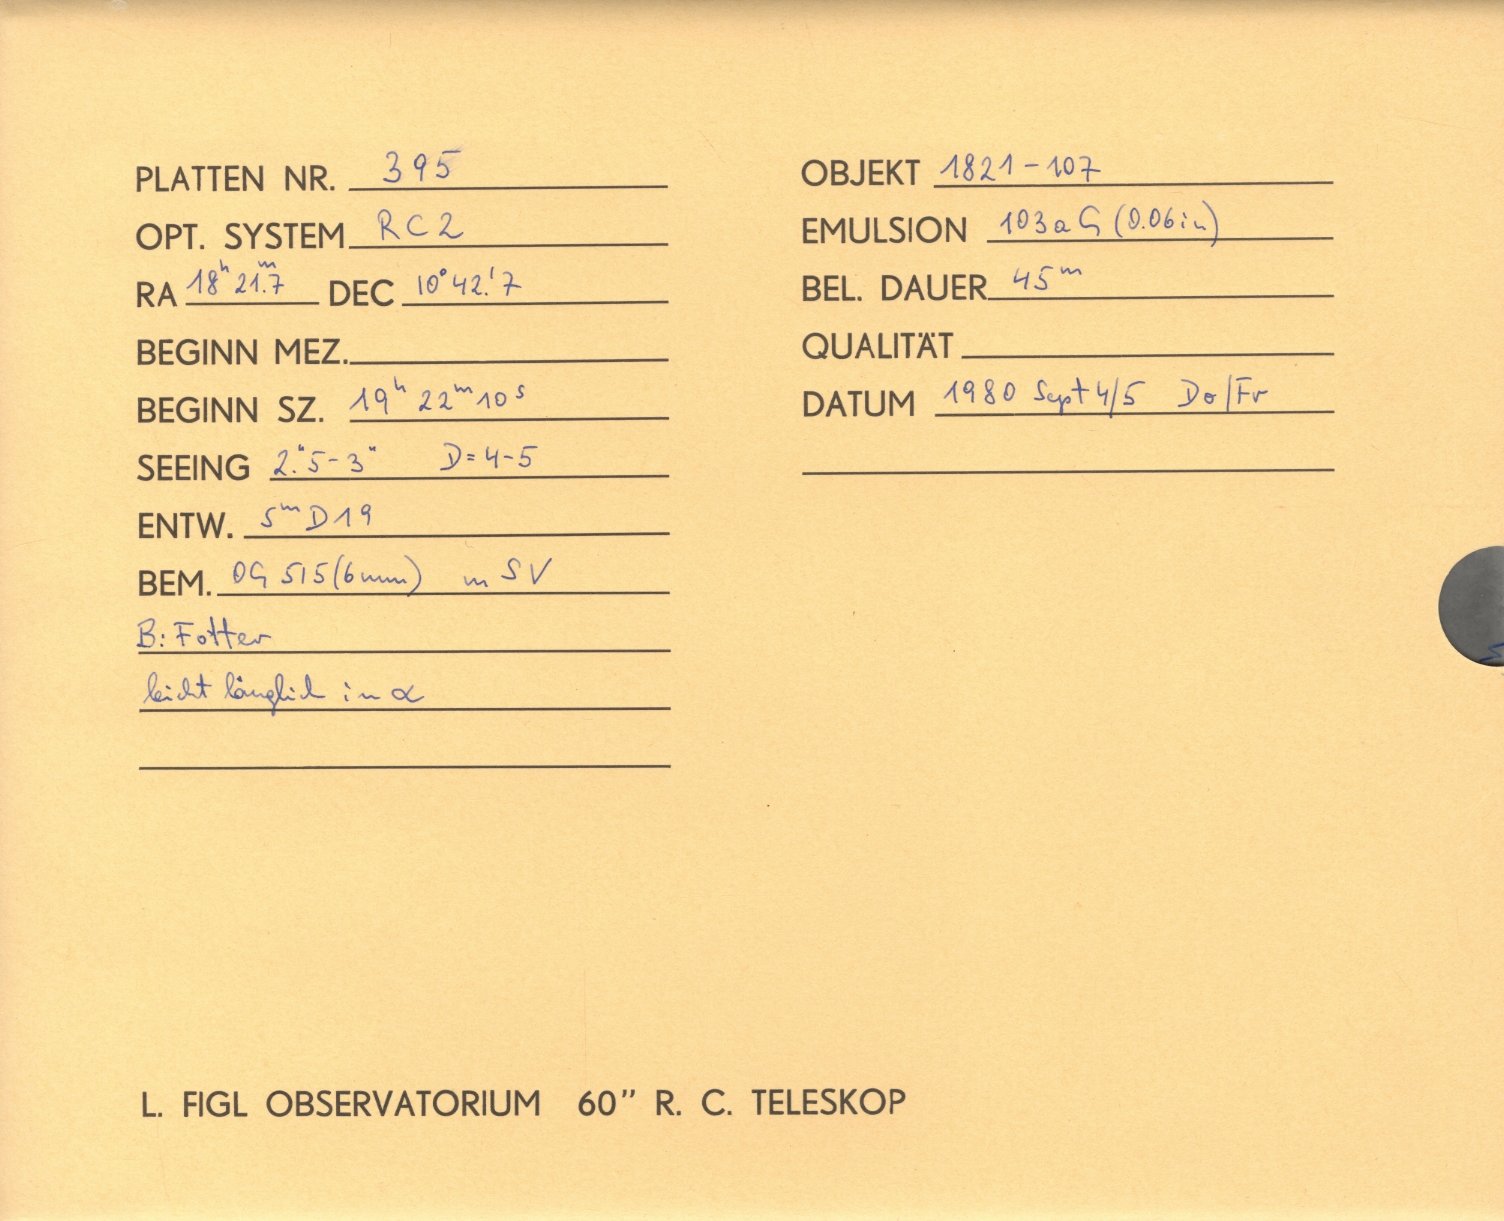 PLATTEN NR. 395
OPT. SYSTEM RC2
RA 18ʰ 21.ᵐ7 DEC 10°42.'7
BEGINN MEZ.
BEGINN SZ. 19ʰ 22ᵐ 10ˢ
SEEING 2."5-3" D=4-5
ENTW. 5ᵐ D19
BEM. OG 515 (6mm) m SV
B: Fotter
leicht länglich in α
OBJEKT 1821-107
EMULSION 103aG (0.06in)
BEL. DAUER 45ᵐ
QUALITÄT
DATUM 1980 Sept 4/5 Do/Fr
L. FIGL OBSERVATORIUM 60" R. C. TELESKOP